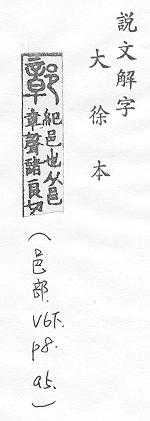 説文解字
大徐本
鄣
紀邑也从邑
章聲諸良切
(邑部. V6下. p8. a5.)